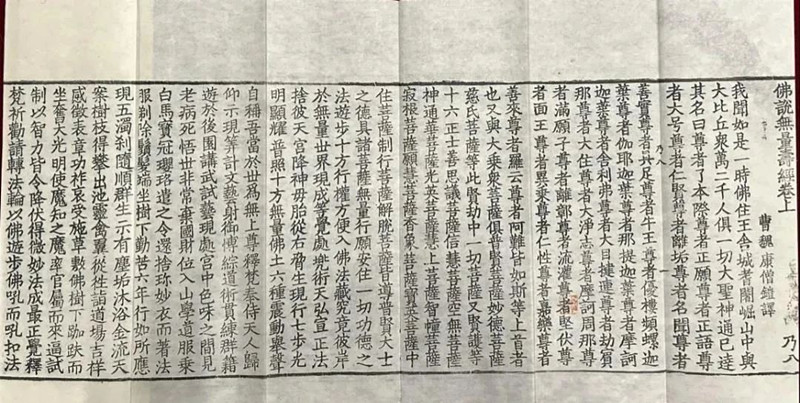 佛說無量壽經卷上 乃八
曹魏康僧鎧譯
我聞如是一時佛住王舍城耆闍崛山中與
大比丘衆萬二千人俱一切大聖神通已達
其名曰尊者了本際尊者正願尊者正語尊
者大号尊者仁賢尊者離垢尊者名聞尊者
乃八 一
善實尊者具足尊者牛王尊者優樓頻螺迦
葉尊者伽耶迦葉尊者那提迦葉尊者摩訶
迦葉尊者舍利弗尊者大目揵連尊者劫賓
那尊者大住尊者大淨志尊者摩訶周那尊
者滿願子尊者離鄣尊者流灌尊者堅伏尊
者面王尊者異乗尊者仁性尊者嘉樂尊者
善來尊者羅云尊者阿難皆如斯等上首者
也又與大乗衆菩薩俱普賢菩薩妙德菩薩
慈氏菩薩等此賢劫中一切菩薩又賢護等
十六正士善思議菩薩信慧菩薩空無菩薩
神通華菩薩光英菩薩慧上菩薩智幢菩薩
寂根菩薩願慧菩薩香象菩薩寶英菩薩中
住菩薩制行菩薩解脫菩薩皆遵普賢大士
之德具諸菩薩無量行願安住一切功德之
法遊步十方行權方便入佛法藏究竟彼岸
於無量世界現成等覺處兜術天弘宣正法
捨彼天宮降神母胎從右脅生現行七步光
明顯耀普照十方無量佛土六種震動舉聲
自稱吾當於世爲無上尊釋梵奉侍天人歸
仰示現筭計文藝射御博綜道術貫練群籍
遊於後園講武試藝現處宮中色味之間見
老病死悟世非常棄國財位入山學道服乗
白馬寶冠瓔珞遣之令還捨珍妙衣而著法
服剃除鬚髮端坐樹下勤苦六年行如所應
現五濁刹隨順群生示有塵垢沐浴金流天
案樹枝得攀出池靈禽翼從往詣道場吉祥
感徵表章功祚哀受施草敷佛樹下跏趺而
坐奮大光明使魔知之魔率官屬而來逼試
制以智力皆令降伏得微妙法成最正覺釋
梵祈勸請轉法輪以佛遊步佛吼而吼扣法